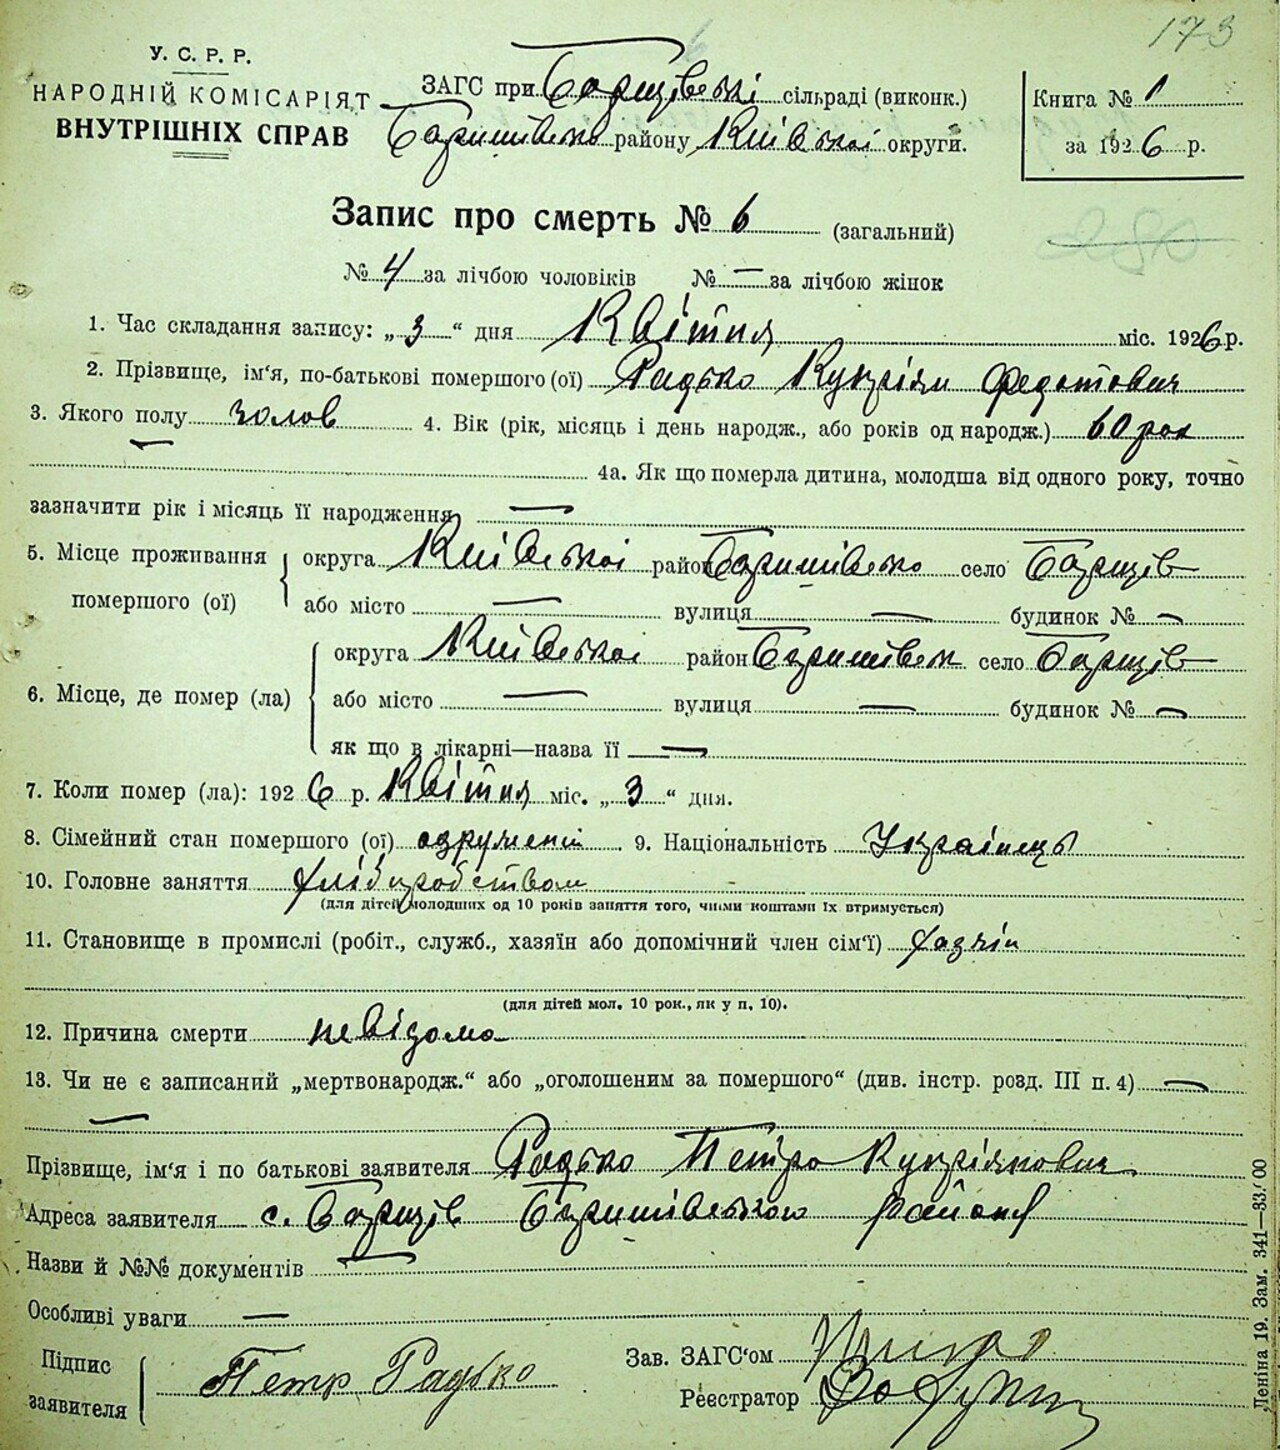 173
У. С. Р. Р.
НАРОДНІЙ КОМІСАРІЯТ
ВНУТРІШНІХ СПРАВ
ЗАГС при Борщівські сільраді (виконк.)
Баришівсько району Київської округи.
Книга № 1
за 1926 р.
Запис про смерть № 6 (загальний)
№ 4 за лічбою чоловіків № — за лічбою жінок
1. Час складання запису: „ 3 “ дня Квітня міс. 1926 р.
2. Прізвище, ім'я, по-батькові помершого (ої) Радько Купріян Федотович
3. Якого полу чолов 4. Вік (рік, місяць і день народж., або років од народж.) 60 рок
4а. Як що померла дитина, молодша від одного року, точно
зазначити рік і місяць її народження —
5. Місце проживання помершого (ої) округа Київської район Баришівсько село Борщів
або місто — вулиця — будинок № —
6. Місце, де помер (ла) округа Київської район Баришівськ село Борщів
або місто — вулиця — будинок № —
як що в лікарні—назва її —
7. Коли помер (ла): 1926 р. Квітня міс. „ 3 “ дня.
8. Сімейний стан помершого (ої) одружений 9. Національність Українець
10. Головне заняття хліборобством
(для дітей молодших од 10 років заняття того, чиїми коштами їх втримується)
11. Становище в промислі (робіт., служб., хазяїн або допомічний член сім'ї) хазяїн
(для дітей мол. 10 рок., як у п. 10).
12. Причина смерти невідома
13. Чи не є записаний „мертвонародж.“ або „оголошеним за помершого“ (див. інстр. розд. III п. 4) —
—
Прізвище, ім'я і по батькові заявителя Радько Петро Купріянович
Адреса заявителя с. Борщів Баришівського району
Назви й №№ документів —
Особливі уваги —
Підпис заявителя Петр Радько
Зав. ЗАГС'ом
Реєстратор
Леніна 19. Зам. 341—33.00